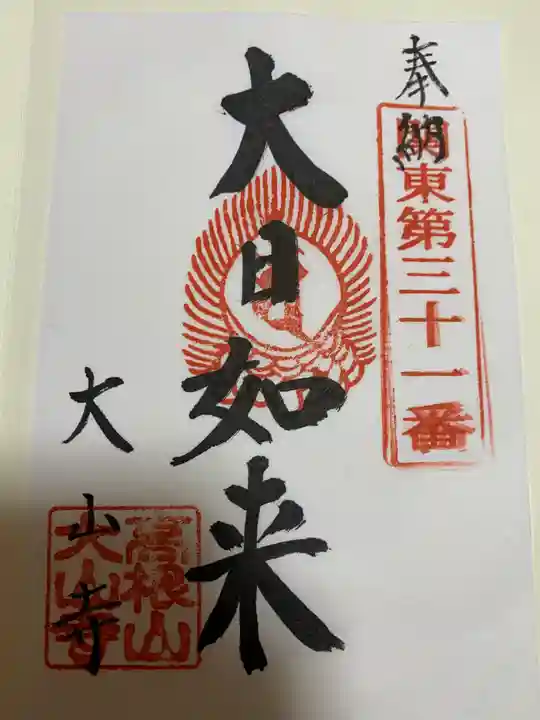 奉納
関東第三十一番
大日如来
大山寺
高根山
大山寺